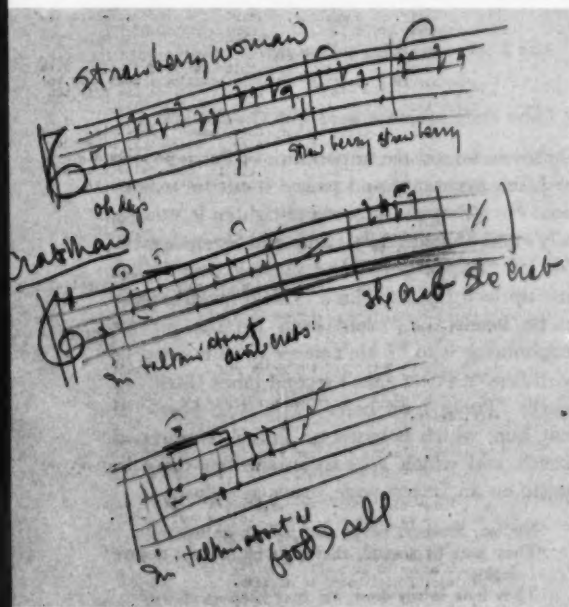 Strawberry woman
oh dey's
Straw berry straw berry
Crab Man
I'm talkin' about
devil crabs
she crab she crab
I'm talkin about de
food I sell